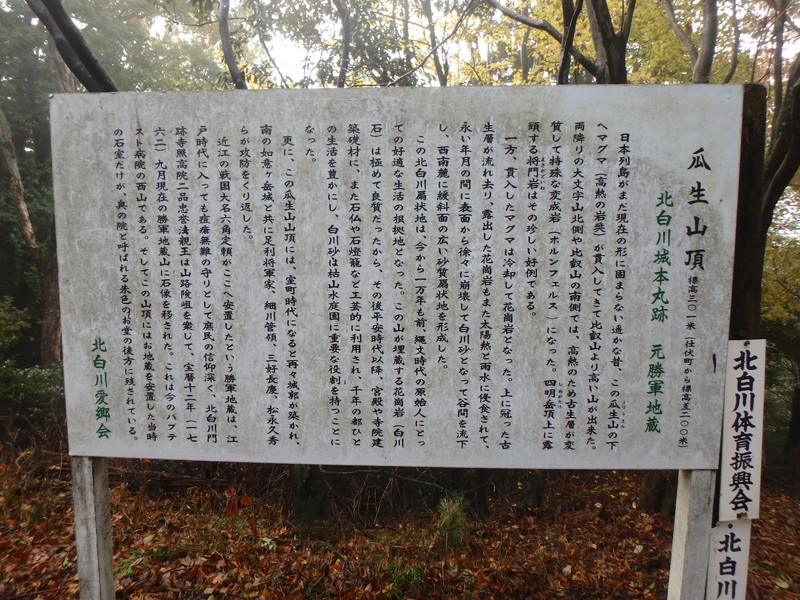 瓜生山頂 標高三〇一米(仕伏町から標高差二〇〇米)
北白川城本丸跡 元勝軍地蔵
日本列島がまだ現在の形に固まらない遥かな昔、この瓜生山の下
へマグマ(高熱の岩漿)が貫入してきて比叡山より高い山が出来た。
両隣りの大文字山北側や比叡山の南側では、高熱のため古生層が変
質して特殊な変成岩(ホルンフェルス)になった。四明岳頂上に露
頭する将門岩はその珍しい好例である。
一方、貫入したマグマは冷却して花崗岩となった。上に冠った古
生層が流れ去り、露出した花崗岩もまた太陽熱と雨水に侵食されて、
永い年月の間に表面から徐々に崩壊して白川砂となって谷間を流下
し、西南麓に緩斜面の広い砂質扇状地を形成した。
この北白川扇状地は、今から一万年も前、縄文時代の原始人にとっ
ての好適な生活の根拠地となった。この山が埋蔵する花崗岩(白川
石)は極めて良質だったから、その後平安時代以降、宮殿や寺院建
築礎材に、また石仏や石燈籠など工芸的に利用され、千年の都びと
の生活を豊かにし、白川砂は枯山水庭園に重要な役割を持つことに
なった。
更に、この瓜生山山頂には、室町時代になると再々城郭が築かれ、
南の如意ヶ岳城と共に足利将軍家、細川管領、三好長慶、松永久秀
らが攻防をくり返した。
近江の戦国大名六角定頼がここへ安置したという勝軍地蔵は、江
戸時代に入っても痘瘡無難の守りとして庶民の信仰深く、北白川門
跡寺照高院二品忠誉法親王は山路険岨を案じて、宝暦十二年(一七
六二)九月現在の勝軍地蔵山に石像を移された。これは今のバプテ
スト病院の西山である。そしてこの山頂にはお地蔵を安置した当時
の石室だけが、奥の院と呼ばれる朱色のお堂の後方に残されている。
北白川愛郷会
北白川体育振興会
北白川